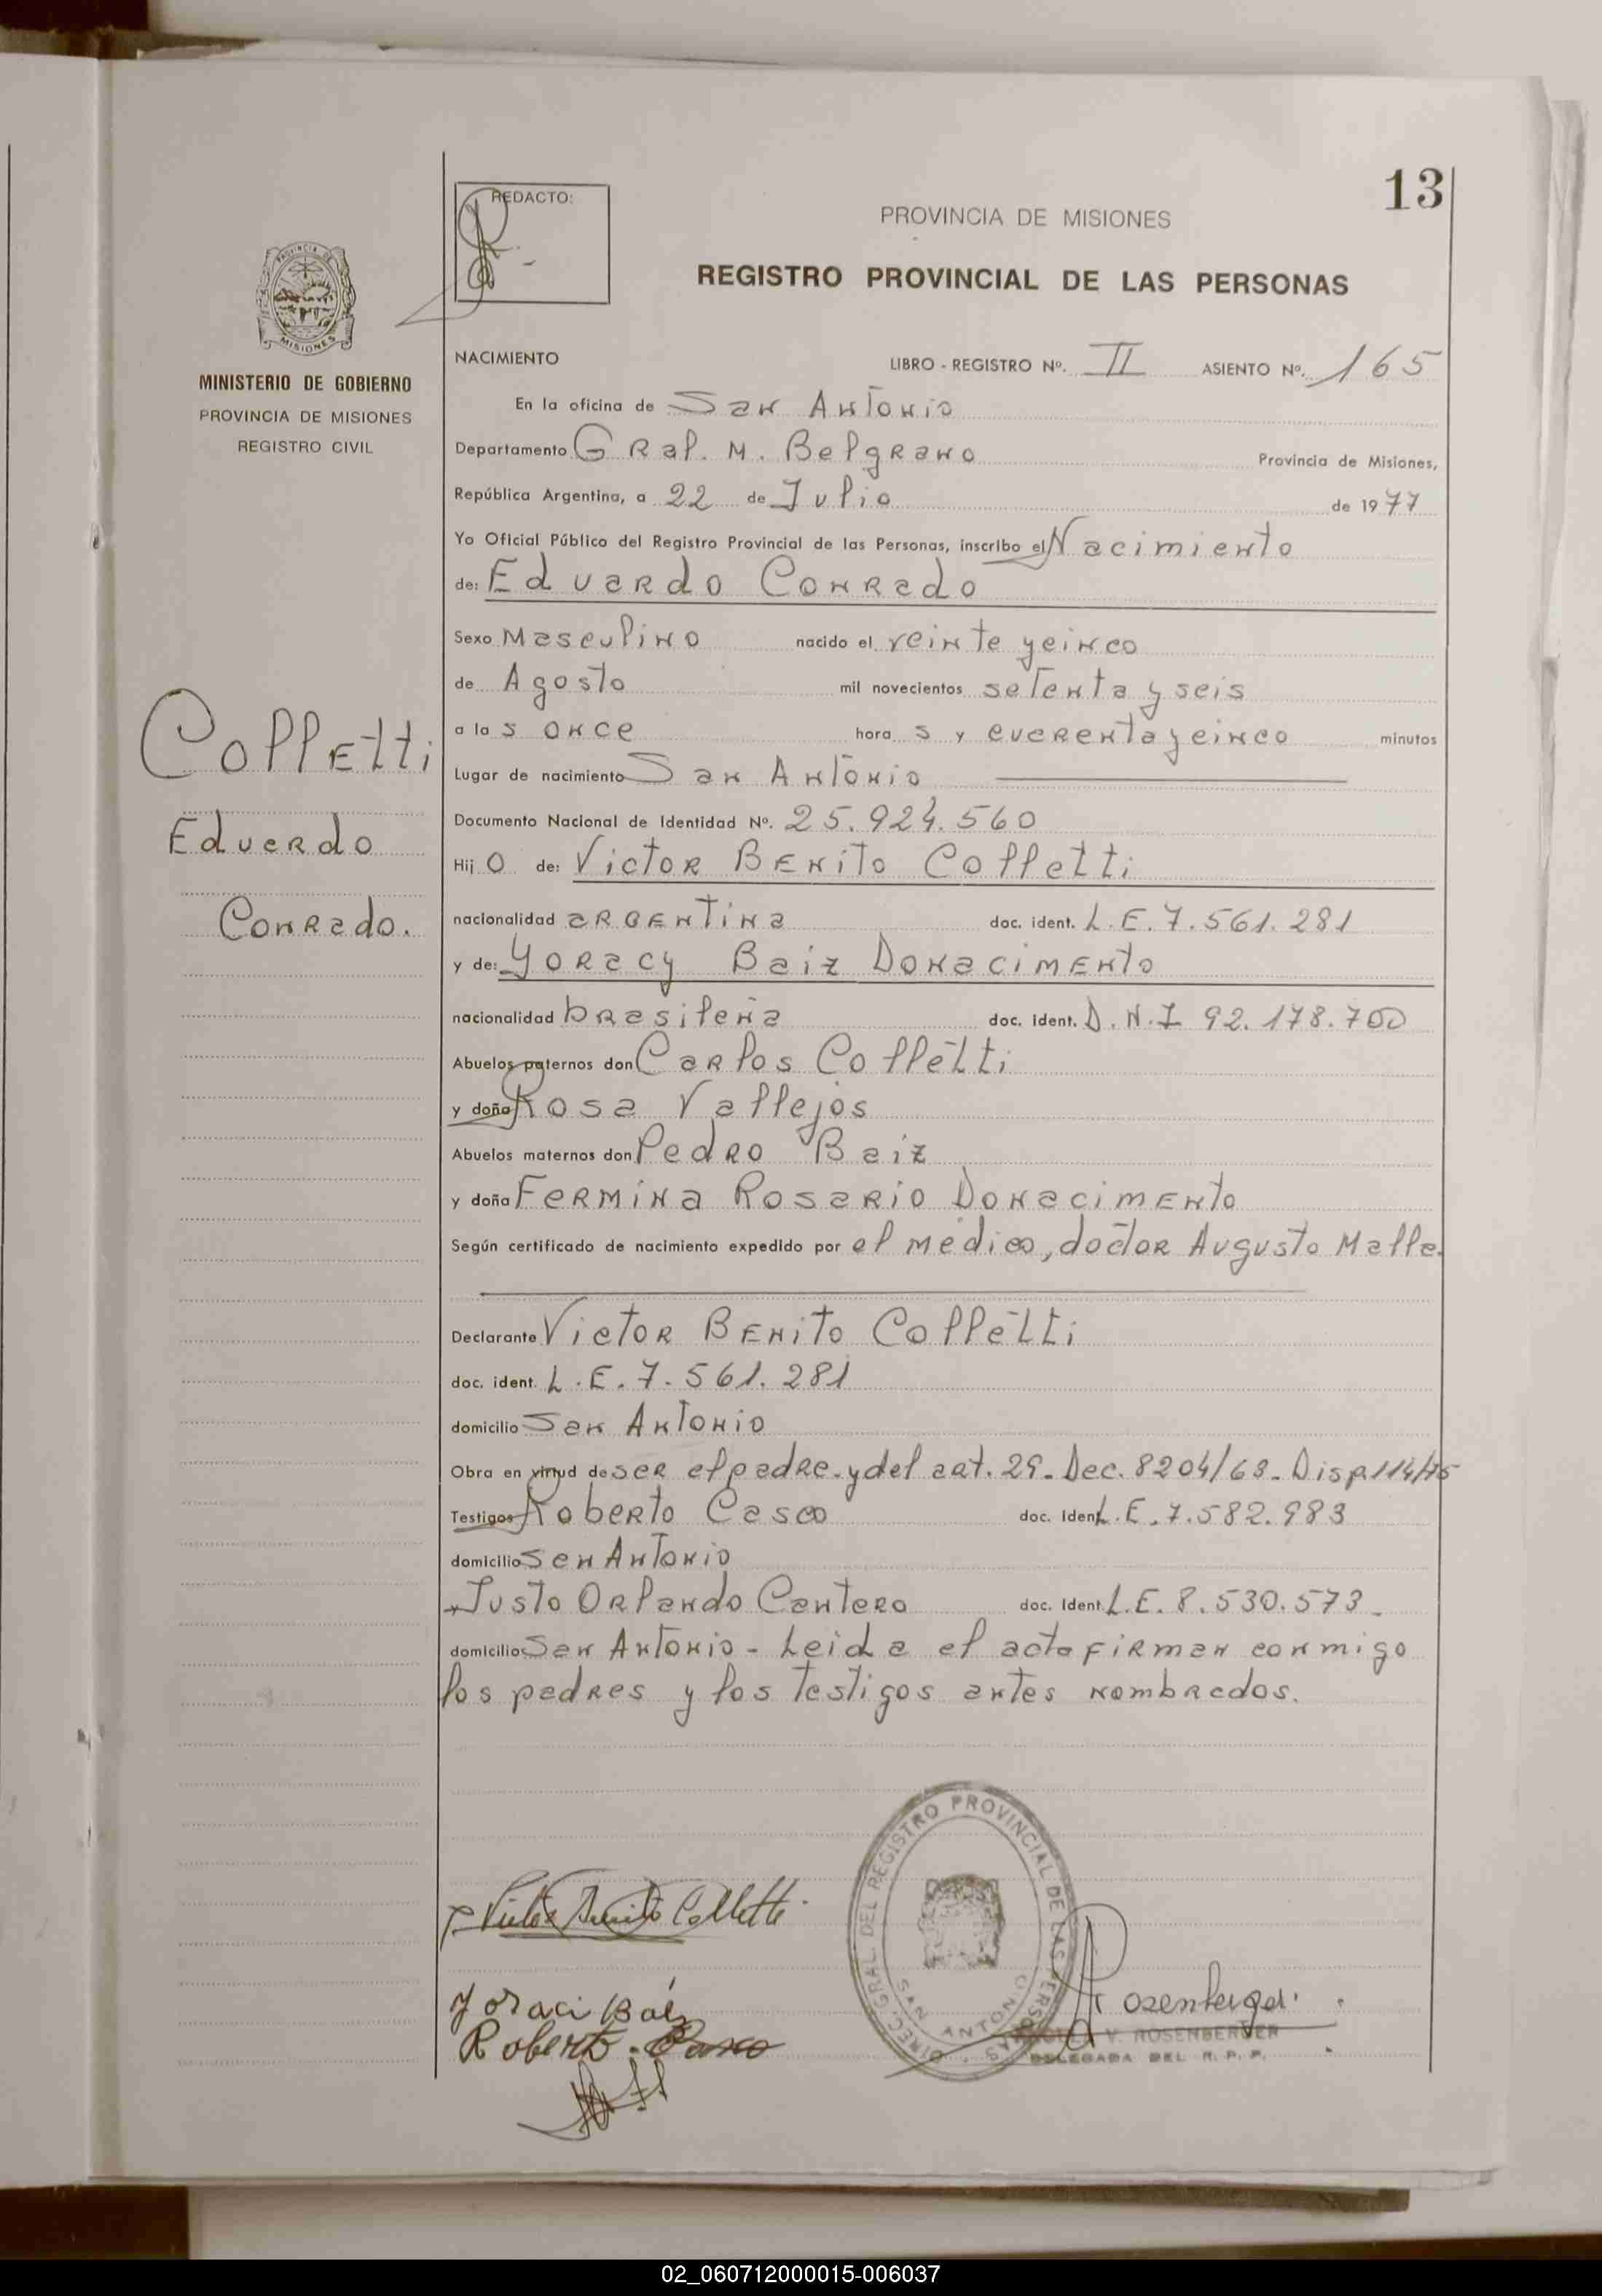 13
REDACTO:
PROVINCIA DE MISIONES
REGISTRO PROVINCIAL DE LAS PERSONAS
PROVINCIA DE
MISIONES
MINISTERIO DE GOBIERNO
PROVINCIA DE MISIONES
REGISTRO CIVIL
NACIMIENTO LIBRO - REGISTRO Nº. II ASIENTO Nº. 165
En la oficina de San Antonio
Departamento Gral. M. Belgrano Provincia de Misiones,
República Argentina, a 22 de Julio de 1977
Yo Oficial Público del Registro Provincial de las Personas, inscribo el Nacimiento
de: Eduardo Conrado
Sexo Masculino nacido el veinte y cinco
de Agosto mil novecientos setenta y seis
a las once horas y cuarenta y cinco minutos
Colletti
Eduardo
Conrado.
Lugar de nacimiento San Antonio
Documento Nacional de Identidad Nº. 25.924.560
Hijo de: Victor Benito Colletti
nacionalidad argentina doc. ident. L.E. 7.561.281
y de: Yoracy Baiz Donacimento
nacionalidad brasileña doc. ident. D.N.I 92.178.700
Abuelos paternos don Carlos Colletti
y doña Rosa Vallejos
Abuelos maternos don Pedro Baiz
y doña Fermina Rosario Donacimento
Según certificado de nacimiento expedido por el médico, doctor Augusto Malle.
Declarante Victor Benito Colletti
doc. ident. L.E. 7.561.281
domicilio San Antonio
Obra en virtud de ser el padre. y del art. 29- Dec. 8204/63- Disp. 114/75
Testigos Roberto Casco doc. Ident. L.E. 7.582.983
domicilio San Antonio
Justo Orlando Cantero doc. Ident. L.E. 8.530.573-
domicilio San Antonio - Leida el acta firman conmigo
los padres y los testigos antes nombrados.
DIREC. GRAL. DEL REGISTRO PROVINCIAL DE LAS PERSONAS
SAN ANTONIO
Victor Benito Colletti
Yoraci Báez
Roberto Casco
Rosenberger
V. ROSENBERGER
DELEGADA DEL R. P. P.
02_060712000015-006037